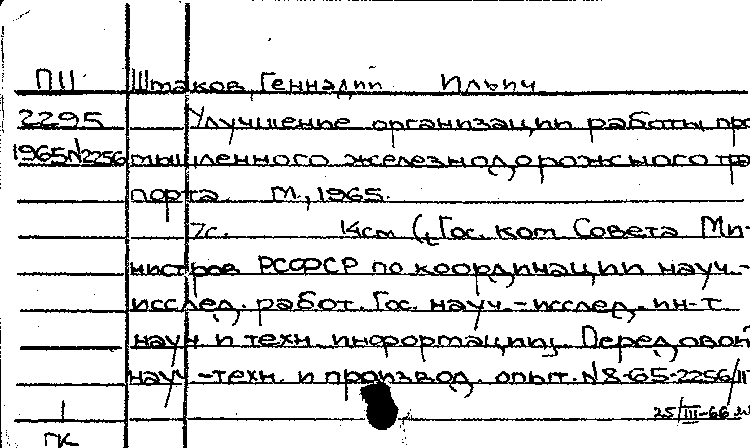 ПИ Штаков, Геннадий Ильич
2295 Улучшение организации работы про-
1965№2256 мышленного железнодорожного тра
порта. М., 1965.
7с. 14см (Гос. ком Совета Ми-
нистров РСФСР по координации науч.-
исслед. работ. Гос. науч.-исслед. ин-т
науч и техн. информации, Передовой
науч-техн. и производ. опыт. №8-65-2256/
25/III-66
ГК